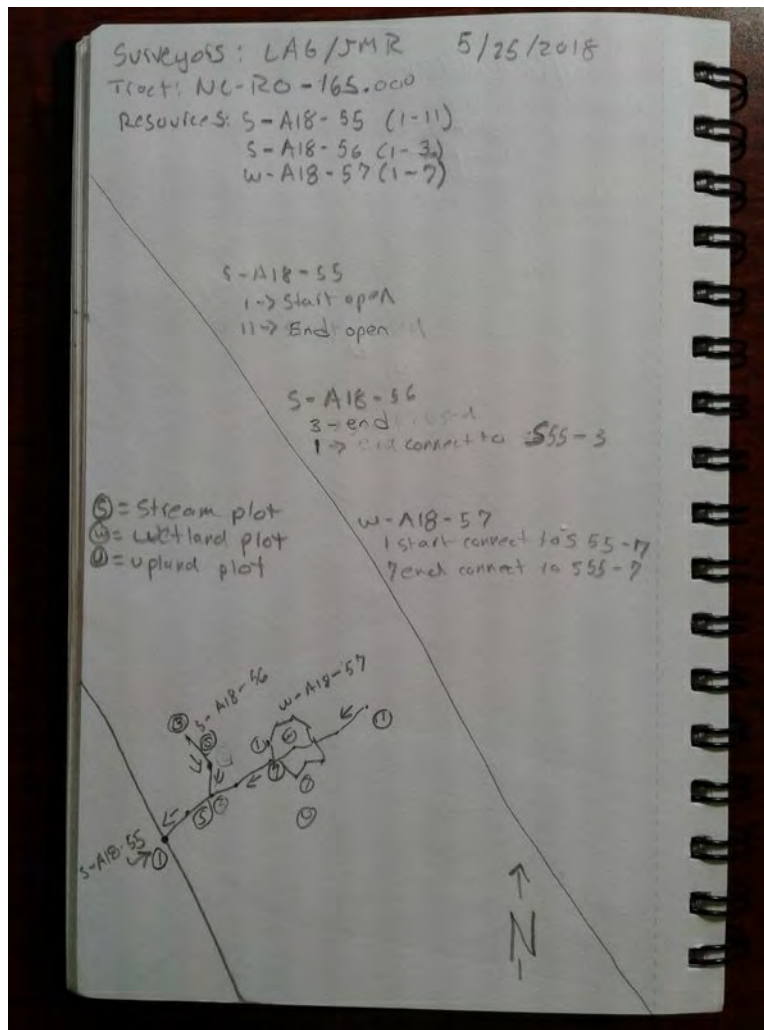 Surveyors: LAG/JMR 5/25/2018
Tract: NC-RO-165.000
Resources: S-A18-55 (1-11)
S-A18-56 (1-3)
W-A18-57 (1-7)
S-A18-55
1-> Start open
11-> End open
S-A18-56
3-end
1-> connect to S55-3
Ⓢ = Stream plot
Ⓦ = Wetland plot
Ⓤ = Upland plot
W-A18-57
1 start connect to S 55-7
7 end connect to S55-7
S-A18-56
W-A18-57
S-A18-55
1
N